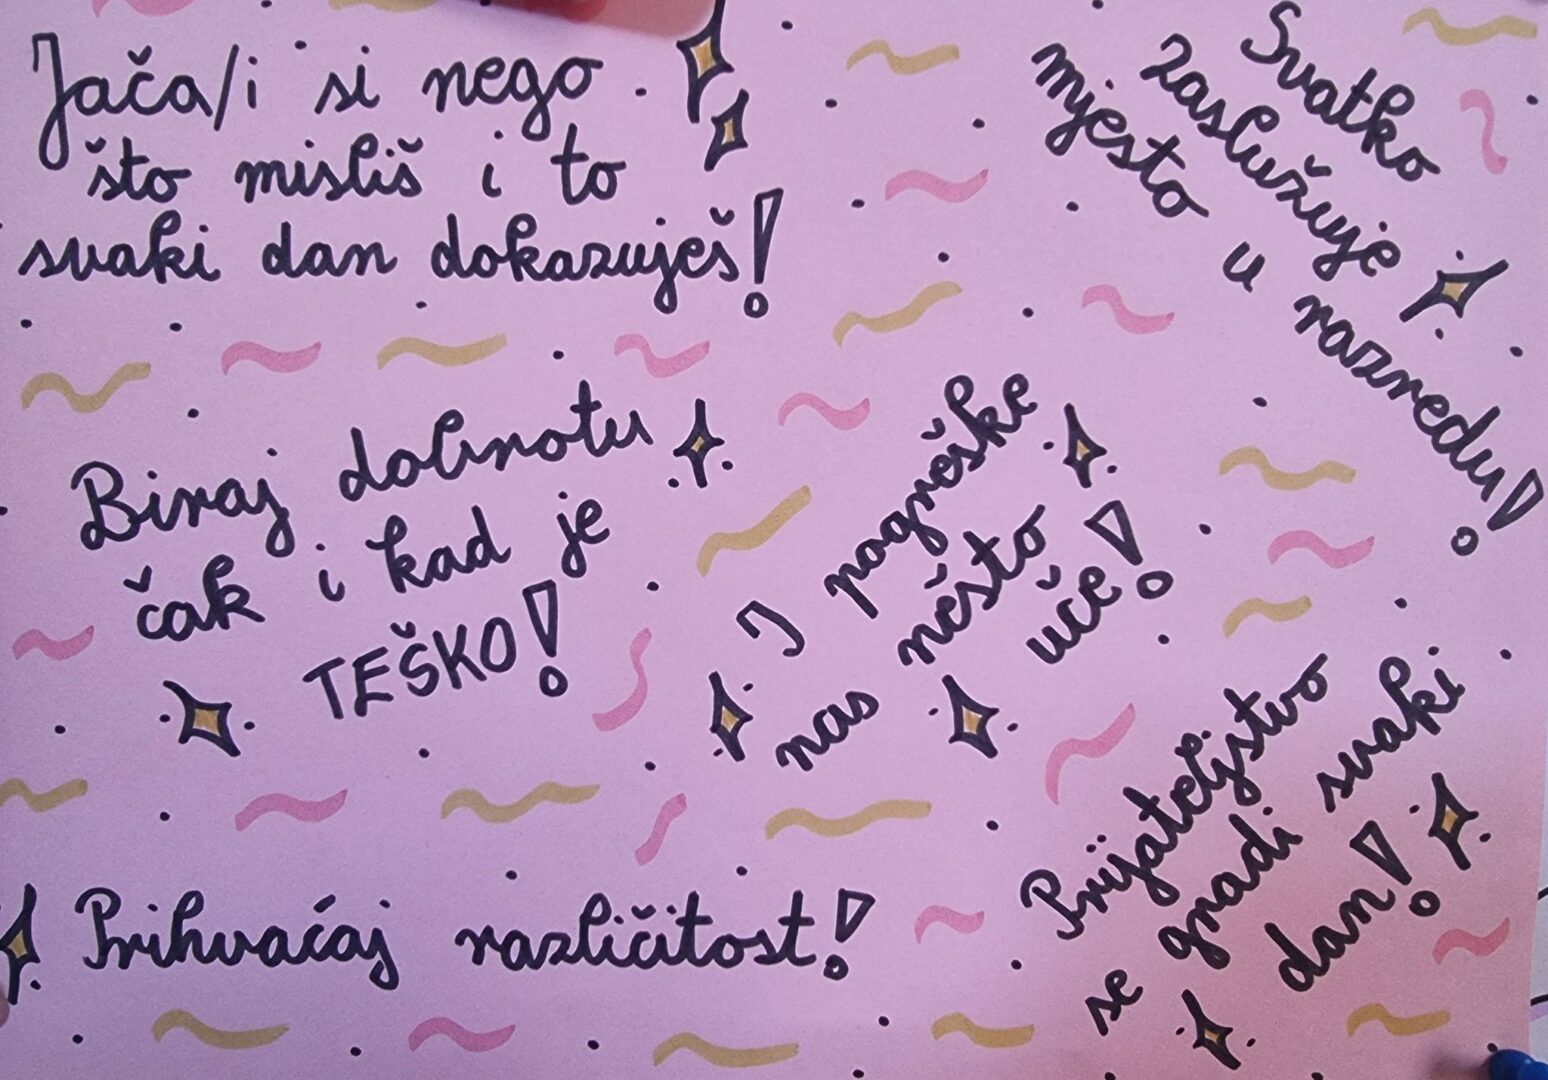 Jača/i si nego
što misliš i to
svaki dan dokazuješ!
Svatko
zaslužuje
mjesto u razredu!
Biraj dobrotu
čak i kad je
TEŠKO!
I pogreške
nas nešto
uče!
Prijateljstvo
se gradi svaki
dan!
Prihvaćaj različitost!